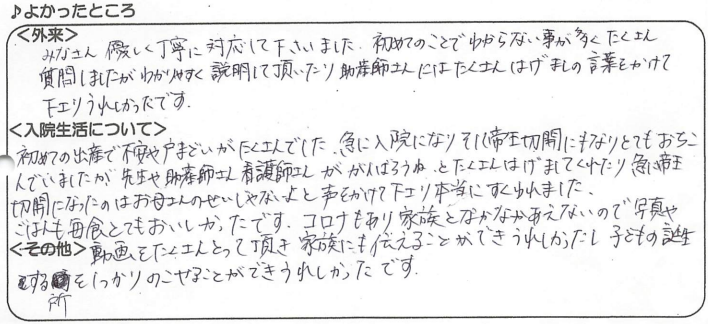 ♪よかったところ
<外来>
みなさん 優しく丁寧に対応して下さいました。初めてのことでわからない事が多くたくさん
質問しましたがわかりやすく説明して頂いたり助産師さんにはたくさんはげましの言葉をかけて
下さりうれしかったです。
<入院生活について>
初めての出産で不安や戸まどいがたくさんでした。急に入院になりそして帝王切開にもなりとてもおちこ
んでいましたが先生や助産師さん看護師さんががんばろうね、とたくさんはげましてくれたり急に帝王
切開になったのはお母さんのせいじゃないよと声をかけて下さり本当にすくわれました。
ごはんも毎食とてもおいしかったです。コロナもあり家族となかなかあえないので写真や
<その他>動画をたくさんとって頂き家族にも伝えることができうれしかったし子どもの誕生
する所をしっかりのこせることができうれしかったです。